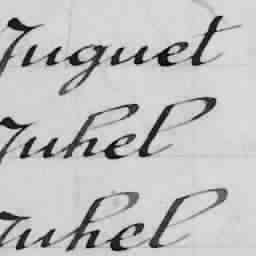 Juguet
Juhel
Juhel